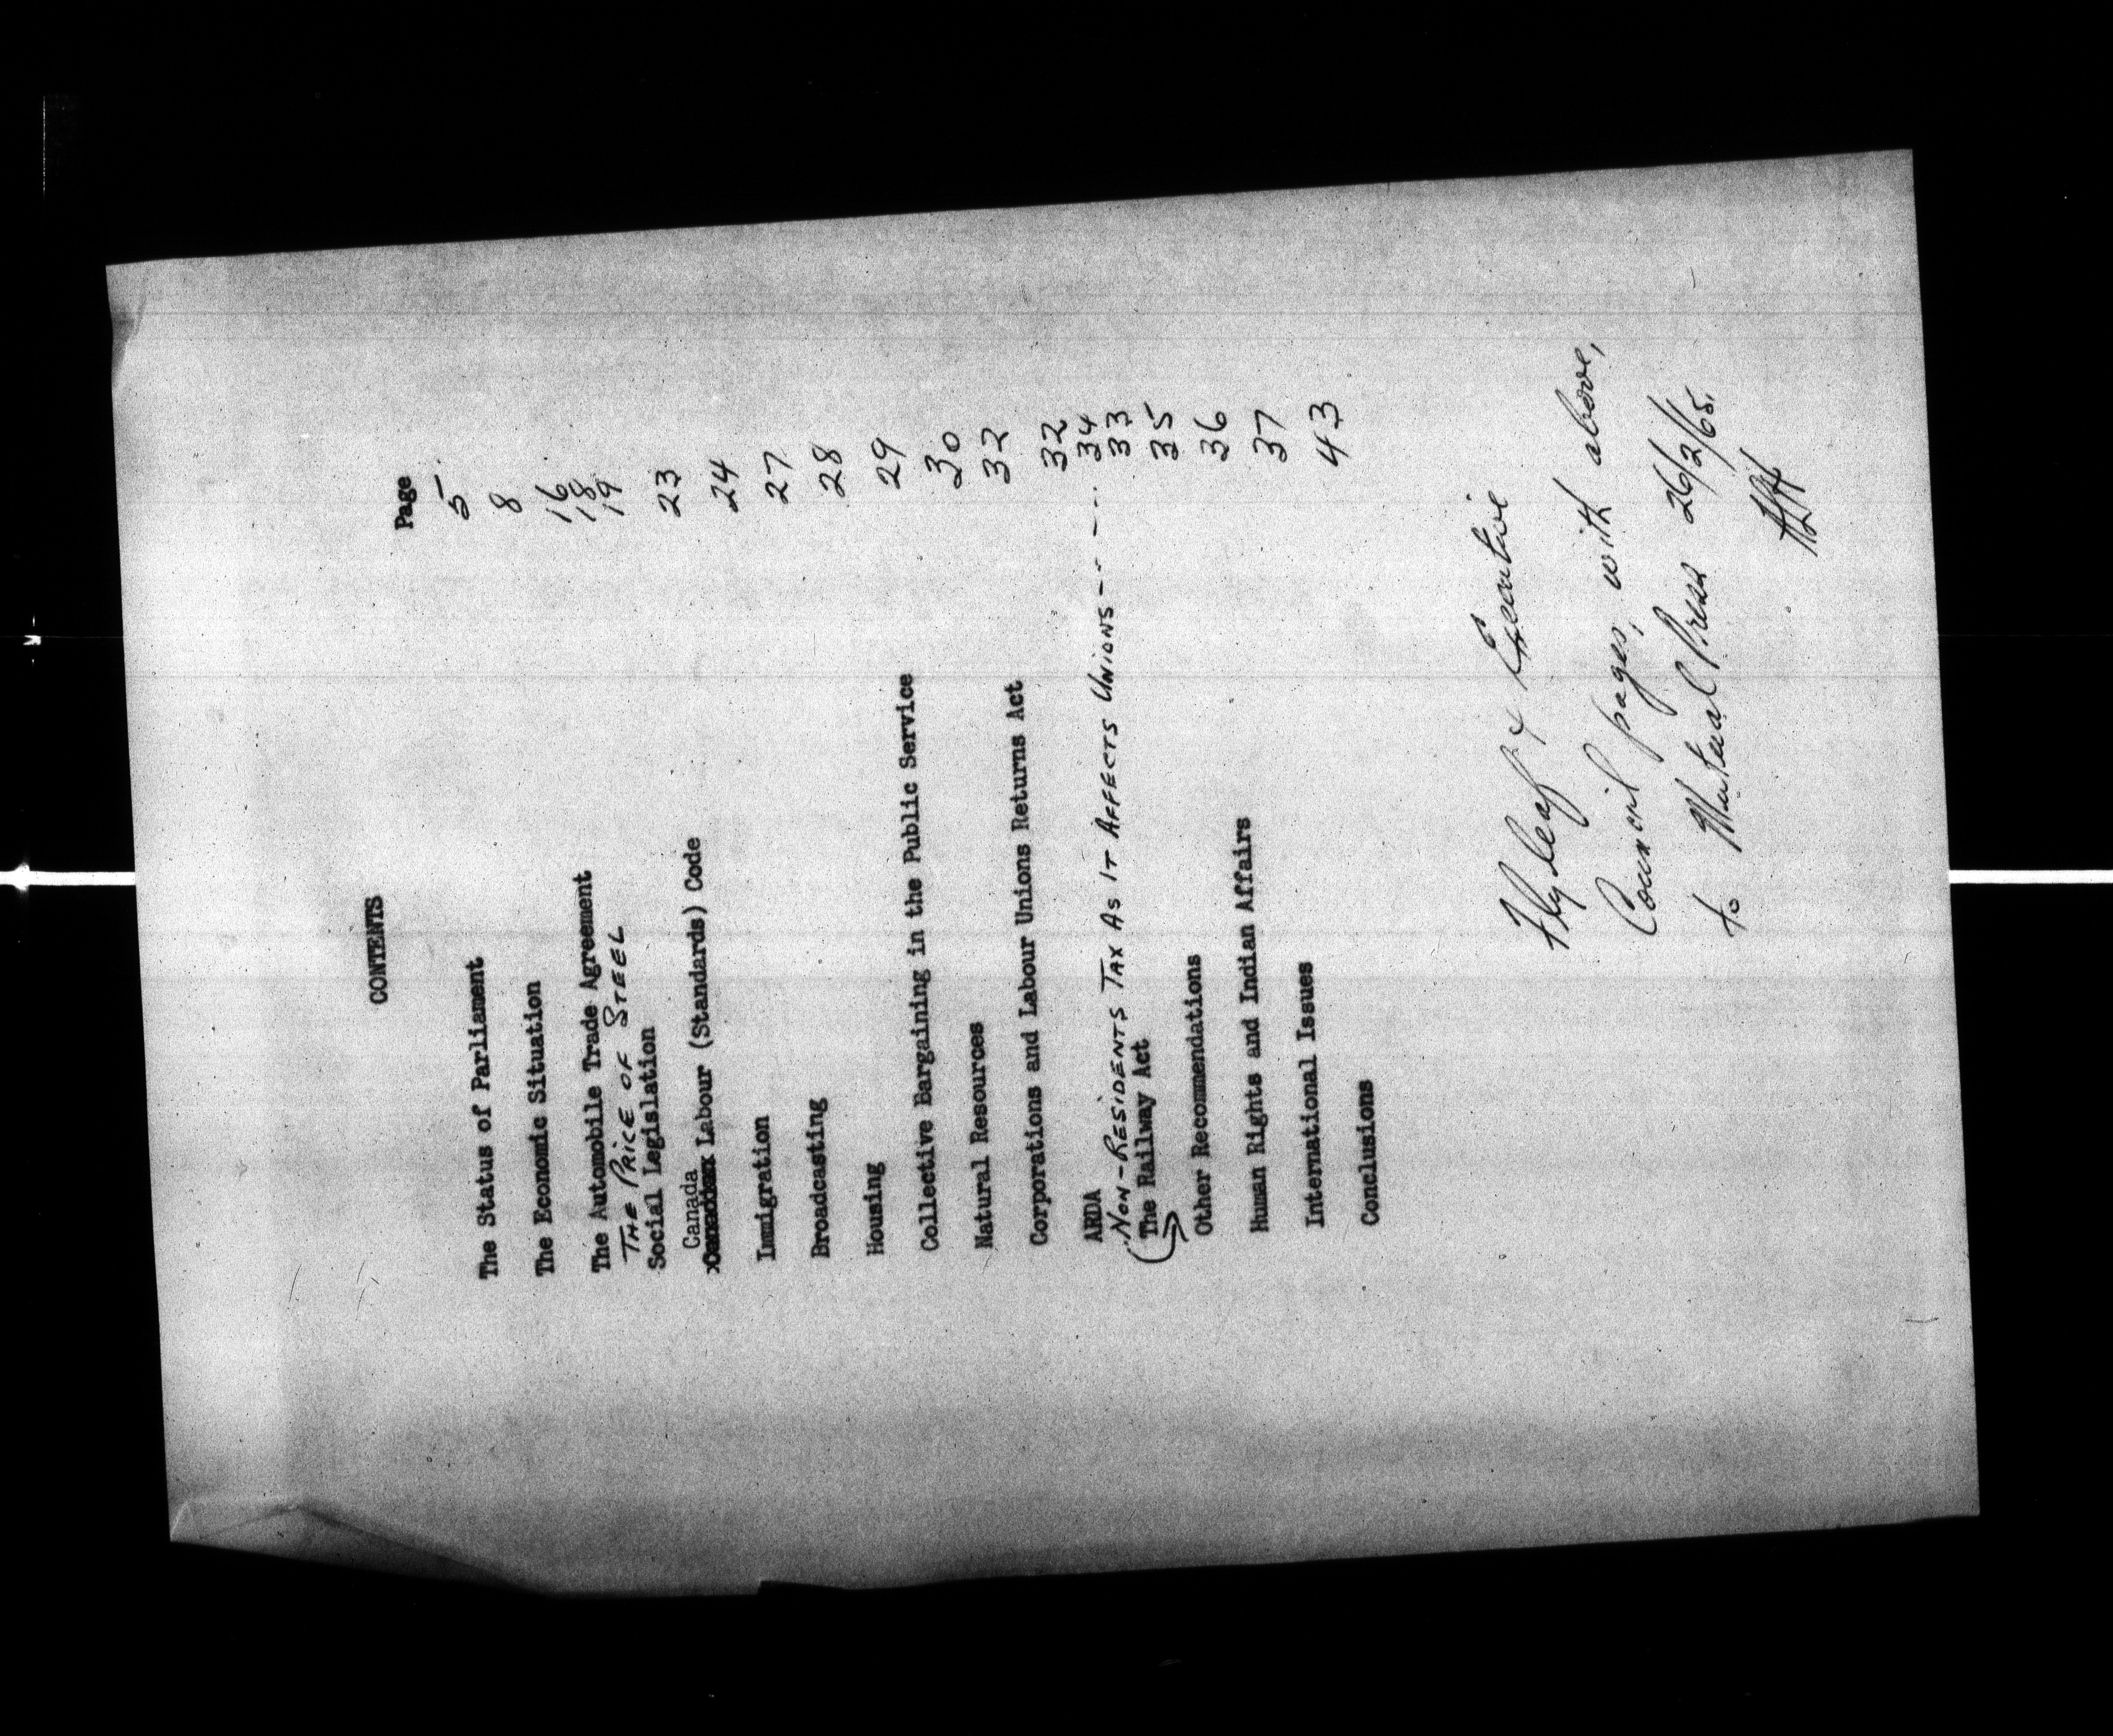 CONTENTS
Page
The Status of Parliament 5
The Economic Situation 8
The Automobile Trade Agreement 16
THE PRICE OF STEEL 18
Social Legislation 19
Canada
Labour (Standards) Code 23
Immigration 24
Broadcasting 27
Housing 28
Collective Bargaining in the Public Service 29
Natural Resources 30
Corporations and Labour Unions Returns Act 32
ARDA 32
NON-RESIDENTS TAX AS IT AFFECTS UNIONS------ 34
The Railway Act 33
Other Recommendations 35
Human Rights and Indian Affairs 36
International Issues 37
Conclusions 43
Flyleaf & Executive
Council pages, with above,
to Mutual Press 26/2/65.